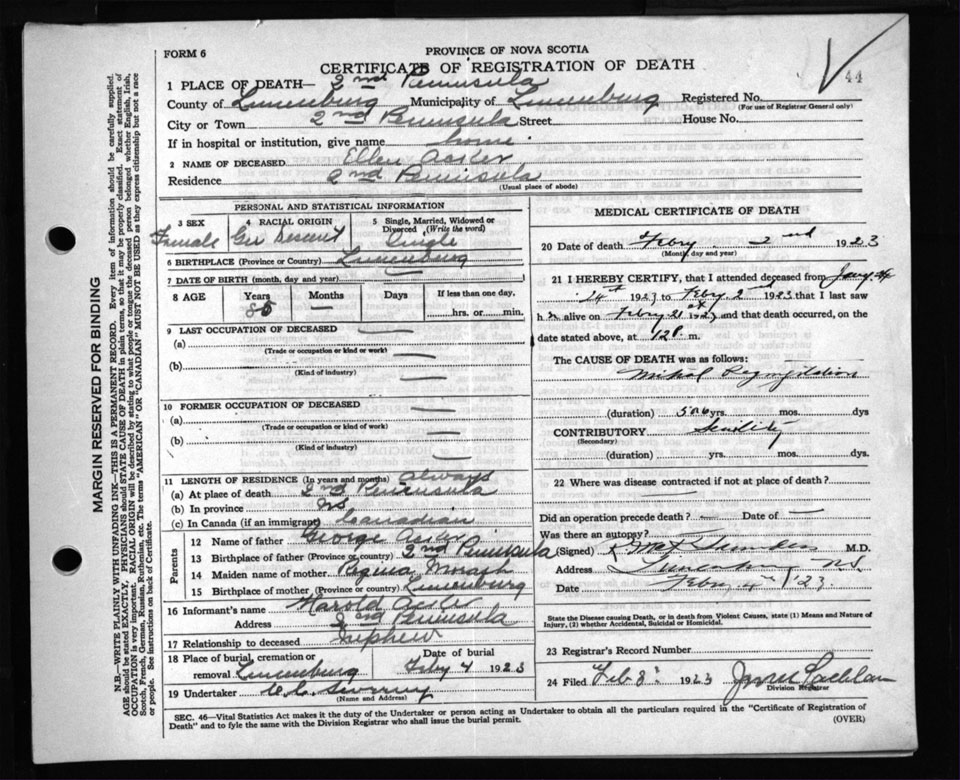 PROVINCE OF NOVA SCOTIA
FORM 6
CERTIFICATE OF REGISTRATION OF DEATH
44
1 PLACE OF DEATH— 2nd Peninsula
County of Lunenburg Municipality of Lunenburg Registered No.
(For use of Registrar General only)
City or Town 2nd Peninsula Street House No.
If in hospital or institution, give name home
2 NAME OF DECEASED Ellen
Residence 2nd Peninsula
(Usual place of abode)
PERSONAL AND STATISTICAL INFORMATION
3 SEX 4 RACIAL ORIGIN 5 Single, Married, Widowed or Divorced (Write the word)
Female Ger Descent Single
6 BIRTHPLACE (Province or Country) Lunenburg
7 DATE OF BIRTH (month, day and year) —
8 AGE Years Months Days If less than one day.
— hrs. or min.
9 LAST OCCUPATION OF DECEASED —
(a) —
(Trade or occupation or kind or work)
(b) —
(Kind of industry)
10 FORMER OCCUPATION OF DECEASED —
(a) —
(Trade or occupation or kind or work)
(b) —
(Kind of industry)
11 LENGTH OF RESIDENCE (In years and months) always
(a) At place of death 2nd Peninsula
(b) In province NS
(c) In Canada (if an immigrant) Canadian
Parents
12 Name of father George
13 Birthplace of father (Province or country) 2nd Peninsula
14 Maiden name of mother Regina Morash
15 Birthplace of mother (Province or country) Lunenburg
16 Informant's name Harold
Address 2nd Peninsula
17 Relationship to deceased Nephew
18 Place of burial, cremation or removal Lunenburg Date of burial Feby 4 1923
19 Undertaker
(Name and Address)
MEDICAL CERTIFICATE OF DEATH
20 Date of death Febry. 2nd 1923
(Month, day and year)
21 I HEREBY CERTIFY, that I attended deceased from
1923 to Febry 2nd 1923 that I last saw
h alive on Febry 1923 and that death occurred, on the
date stated above, at 12 P. m.
The CAUSE OF DEATH was as follows:
Mitral Regurgitation
(duration) yrs. mos. dys
CONTRIBUTORY Senility
(Secondary)
(duration) yrs. mos. dys
22 Where was disease contracted if not at place of death?
—
Did an operation precede death— — Date of —
Was there an autopsy?
(Signed) M.D.
Address Lunenburg NS.
Date Febry 4th 1923
State the Disease causing Death, or in death from Violent Causes, state (1) Means and Nature of Injury, (2) whether Accidental, Suicidal or Homicidal.
23 Registrar's Record Number
24 Filed Feb 3 1923
Division Registrar
SEC. 46—Vital Statistics Act makes it the duty of the Undertaker or person acting as Undertaker to obtain all the particulars required in the "Certificate of Registration of
Death" and to fyle the same with the Division Registrar who shall issue the burial permit.
(OVER)
MARGIN RESERVED FOR BINDING
N.B.—WRITE PLAINLY WITH UNFADING INK—THIS IS A PERMANENT RECORD. Every item of information should be carefully supplied.
AGE should be stated EXACTLY. PHYSICIANS should STATE CAUSE OF DEATH in plain terms, so that it may be properly classified. Exact statement of
OCCUPATION is very important. RACIAL ORIGIN will be described by stating to what people or tongue the deceased person belonged whether English, Irish,
Scotch, French, German, Russian, Ruthenian, etc. The terms "AMERICAN" OR "CANADIAN" MUST NOT BE USED as they express citizenship but not a race
or people. See instructions on back of Certificate.